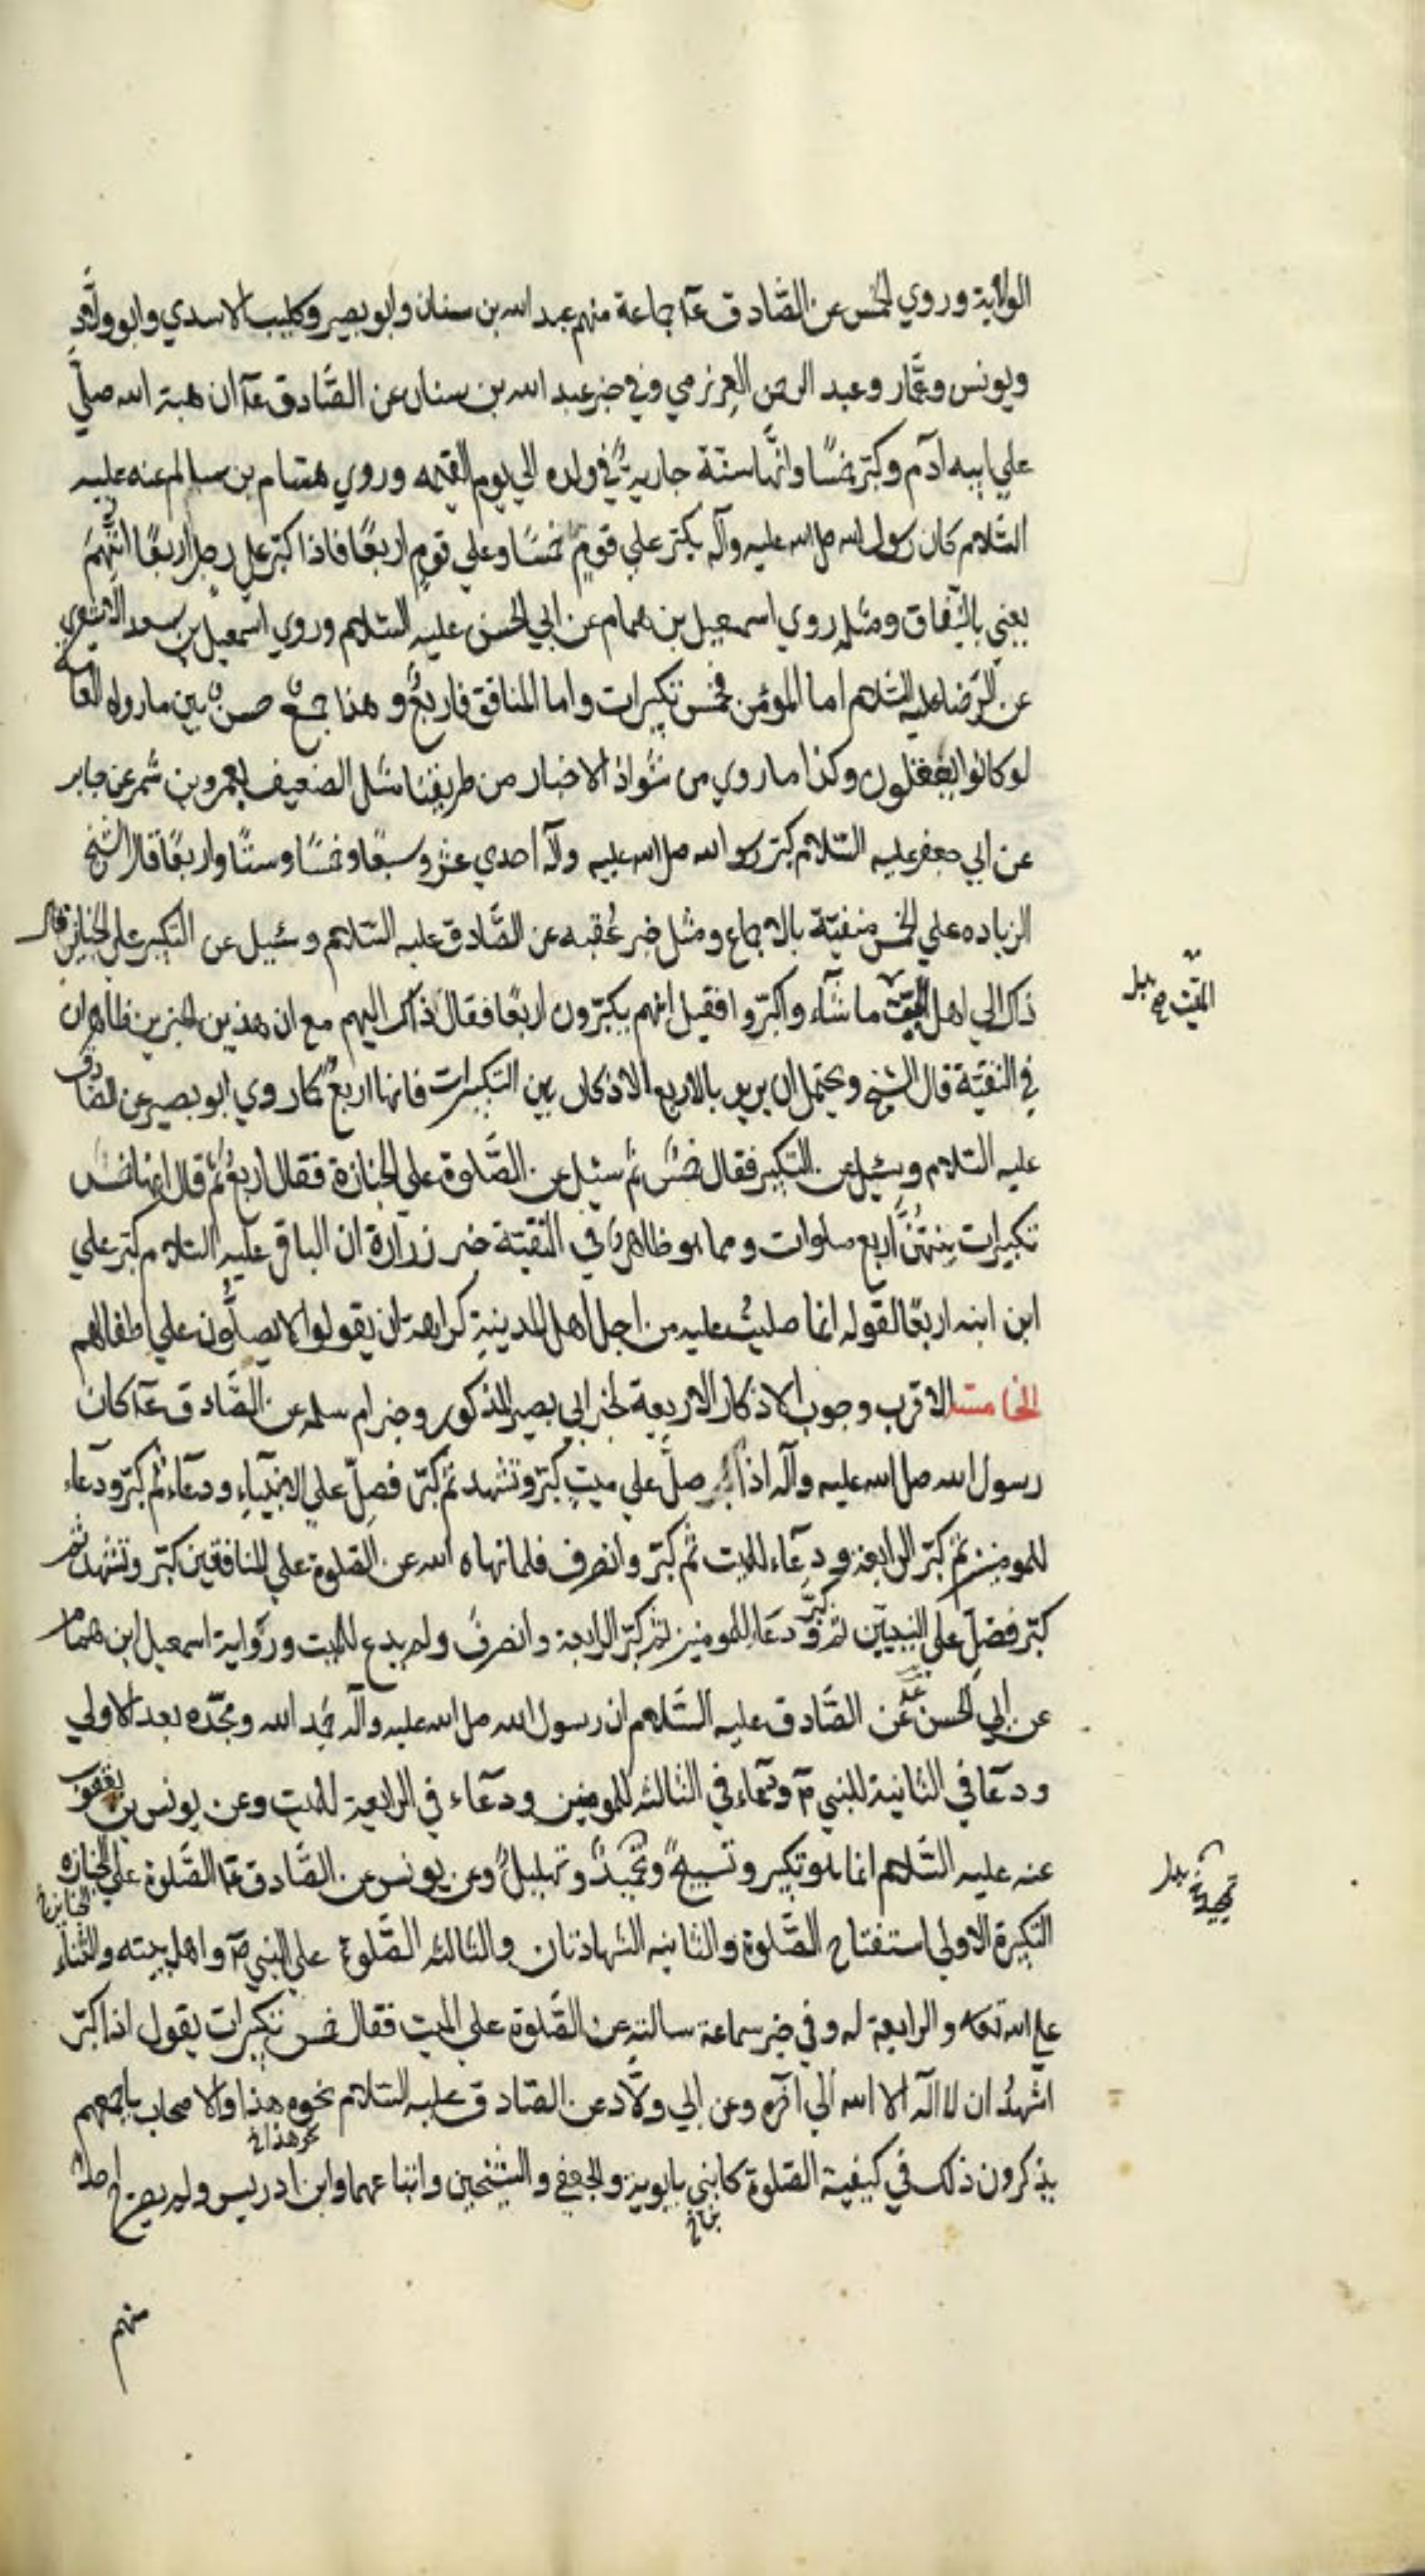 الولاية وروي الخمس عن الصّادق عۤ جماعة منهم عبد الله بن سنان وابو بصير وكليب الاسدي وابو ولّاد
ويونس وعمّار وعبد الرحمن العرزمي وفي خبر عبد الله بن سنان عن الصّادق عۤ ان هبة الله صلّي
علي ابيه ادم وكبّر خمسًا وانّها سنّة جارية في ولده الي يوم القيمه وروي هشام بن سالم عنه عليه
السّلام كان رسول الله صل الله عليه وآله يكبّر علي قومٍ خمسًا وعلي قومٍ اربعًا فاذا كبّر علي رجل اربعًا اتّهم
يعني بالنّفاق ومثله روي اسمعيل بن همام عن ابي الحسن عليه السّلام وروي اسمعيل بن سعد الاشعري
عن الرّضا عليه السّلام اما المؤمن فخمس تكبيرات واما المنافق فاربعٌ وهذا جمع حسن بين ما رواه العامة
لو كانوا يعقلون وكذا ما روي من شواذ الاخبار من طريقنا مثل الضعيف بعمرو بن شمر عن جابر
عن ابي جعفر عليه السّلام كبّر رسول الله صل الله عليه وآله احدي عشر وسبعًا وخمسًا وستًا واربعًا قال الشّيخ
الزياده علي الخمس منفيّة بالاجماع ومثل خبر عُقبه عن الصّادق عليه السّلام وسُئِل عن التكبير علي الجنايز فقال
ذاك الي اهل الميّت ما شآء واكبّروا فقيل انهم يكبّرون اربعًا فقال ذاك اليهم مع ان هذين الخبرين ظاهران
الميّت خ بدل
في التقيّة قال الشيخ ويحتمل ان يريد بالاربع الاذكار بين التكبيرات فانها اربع كما روي ابو بصير عن الصّادق
عليه السّلام وسئل عن التكبير فقال خمسٌ ثم سئل عن الصّلوة علي الجنازة فقال اربعٌ ثم قال انها خمس
تكبيرات بينهنّ اربع صلوات ومما هو ظاهر في التقيّة خبر زرارة ان الباقر عليه السّلام كبّر علي
ابن ابنه اربعًا لقوله انما صليتُ عليه من اجل اهل المدينة كراهة ان يقولوا لا يصلّون علي اطفالهم
الخامسة الاقرب وجوب الاذكار الاربعة لخبر ابي بصير المذكور وخبر ام سلمه عن الصّادق عۤ كان
رسول الله صل الله عليه وآله اذا صلّي علي ميتٍ كبّر وتشهد ثم كبّر فصلّ علي الانبيآء ودعآء ثم كبّر ودعآء
للمومنين ثم كبّر الرابعة ودعآء للميت ثم كبّر وانصرف فلما نهاه الله عن الصّلوة علي المنافقين كبّر وتشهد ثم
كبّر فصلّ علي النبيّين ثم كبّر ودعا للمومنين ثم كبّر الرابعة وانصرف ولم يدع للميت ورواية اسمعيل ابن همام
عن ابي الحسن عۤ عن الصّادق عليه السّلام ان رسول الله صل الله عليه وآله حمد الله ومجّده بعد الاولي
ودعا في الثانية للنبي صۤ ودعآء في الثالثه للمومنين ودعآء في الرابعة للميت وعن يونس بن يعقوب
عنه عليه السّلام انما هو تكبير وتسبيحٌ وتحميدٌ وتهليلٌ وعن يونس عن الصّادق عۤ الصّلوة علي الجنازه
الجنايز خ
تمجيد خ بدل
التكبيرة الاولي استفتاح الصّلوة والثانيه الشهادتان والثالثه الصّلوة علي النبي صۤ واهل بيته والثنآء
علي الله تعه والرابعة له وفي خبر سماعة سالته عن الصّلوة علي الميت فقال خمس تكبيرات يقول اذا كبّر
اشهدُ ان لا اله الا الله الي آخره وعن ابي ولّاد عن الصّادق عليه السّلام نحوه هذا والاصحاب باجمعهم
نحو هذا خ
يذكرون ذلك في كيفية الصّلوة كابني بابويه والجعفي والشيخين واتباعهما وابن ادريس ولم يصرّح احد
منهم